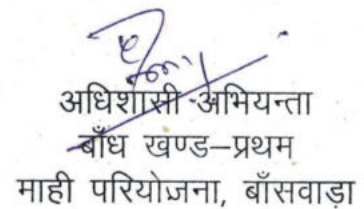 अधिशासी अभियन्ता
बाँध खण्ड–प्रथम
माही परियोजना, बाँसवाड़ा